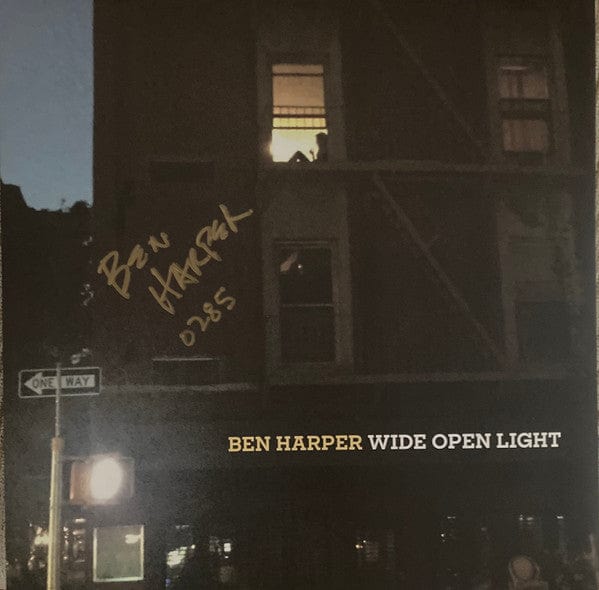 BEN
HARPER
0285
ONE WAY
BEN HARPER WIDE OPEN LIGHT